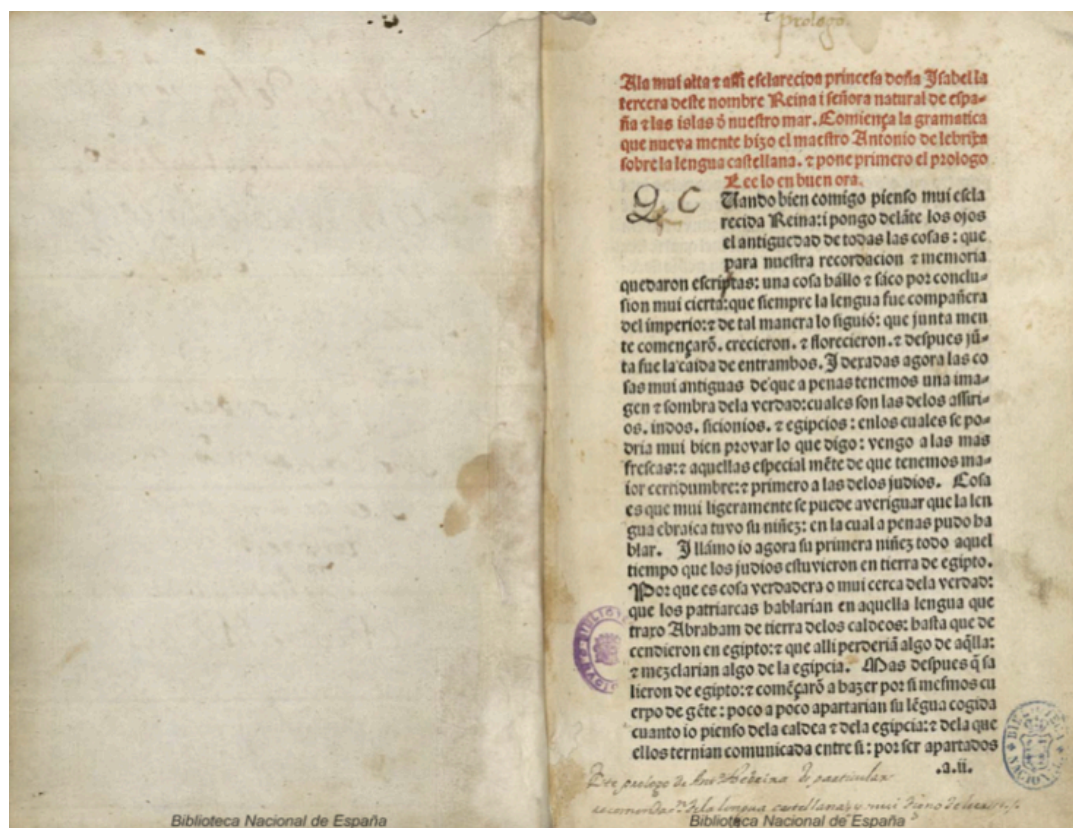 prologo.
Ala mui alta ⁊ assi esclarecida princesa doña Isabel la
tercera deste nombre Reina i señora natural de espa-
ña ⁊ las islas õ nuestro mar. Comiença la gramatica
que nueva mente hizo el maestro Antonio de lebrixa
sobre la lengua castellana. ⁊ pone primero el prologo
Lee lo en buen ora.
Q C Uando bien comigo pienso mui escla
recida Reina: i pongo delãte los ojos
el antiguedad de todas las cosas: que
para nuestra recordacion ⁊ memoria
quedaron escriptas: una cosa hallo ⁊ saco por conclu-
sion mui cierta: que siempre la lengua fue compañera
del imperio: ⁊ de tal manera lo siguió: que junta men
te començarõ. crecieron. ⁊ florecieron. ⁊ despues jũ-
ta fue la caida de entrambos. I dexadas agora las co
sas mui antiguas de que a penas tenemos una ima-
gen ⁊ sombra dela verdad: cuales son las delos assiri-
os. indos. sicionios. ⁊ egipcios: enlos cuales se po-
dria mui bien provar lo que digo: vengo a las mas
frescas: ⁊ aquellas especial mẽte de que tenemos ma-
ior certidumbre: ⁊ primero a las delos judios. Cosa
es que mui ligeramente se puede averiguar que la len
gua ebraica tuvo su niñez: en la cual a penas pudo ha
blar. I llámo io agora su primera niñez todo aquel
tiempo que los judios estuvieron en tierra de egipto.
Por que es cosa verdadera o mui cerca dela verdad:
que los patriarcas hablarian en aquella lengua que
traxo Abraham de tierra delos caldeos: hasta que de
cendieron en egipto: ⁊ que alli perderiã algo de aq̃lla:
⁊ mezclarian algo de la egipcia. Mas despues q̃ sa
lieron de egipto: ⁊ comẽçarõ a hazer por si mesmos cu
erpo de gẽte: poco a poco apartarian su lẽgua cogida
cuanto io pienso dela caldea ⁊ dela egipcia: ⁊ dela que
ellos ternian comunicada entre si: por ser apartados
.a.ii.
prologo de Antº Nebrixa
de la lengua castellana y mui digno de
Biblioteca Nacional de España
Biblioteca Nacional de España